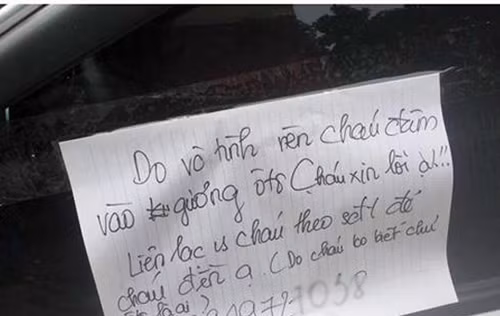 Do vô tình nên cháu đâm
vào gương ôtô Cháu xin lỗi ạ!!
Liên lạc vs cháu theo sdt để
cháu đền ạ. (Do cháu ko biết chủ
là ai)